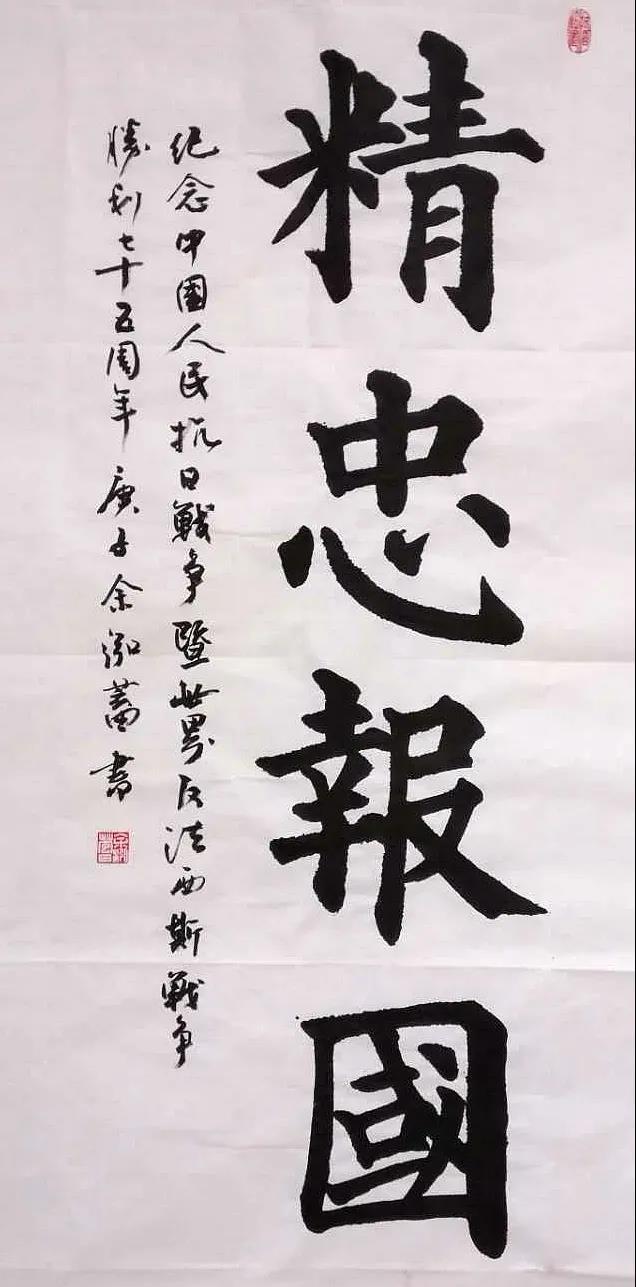 精忠報國
纪念中國人民抗日戰争暨世界反法西斯戰争
勝利七十五周年 庚子 余泓蓄書